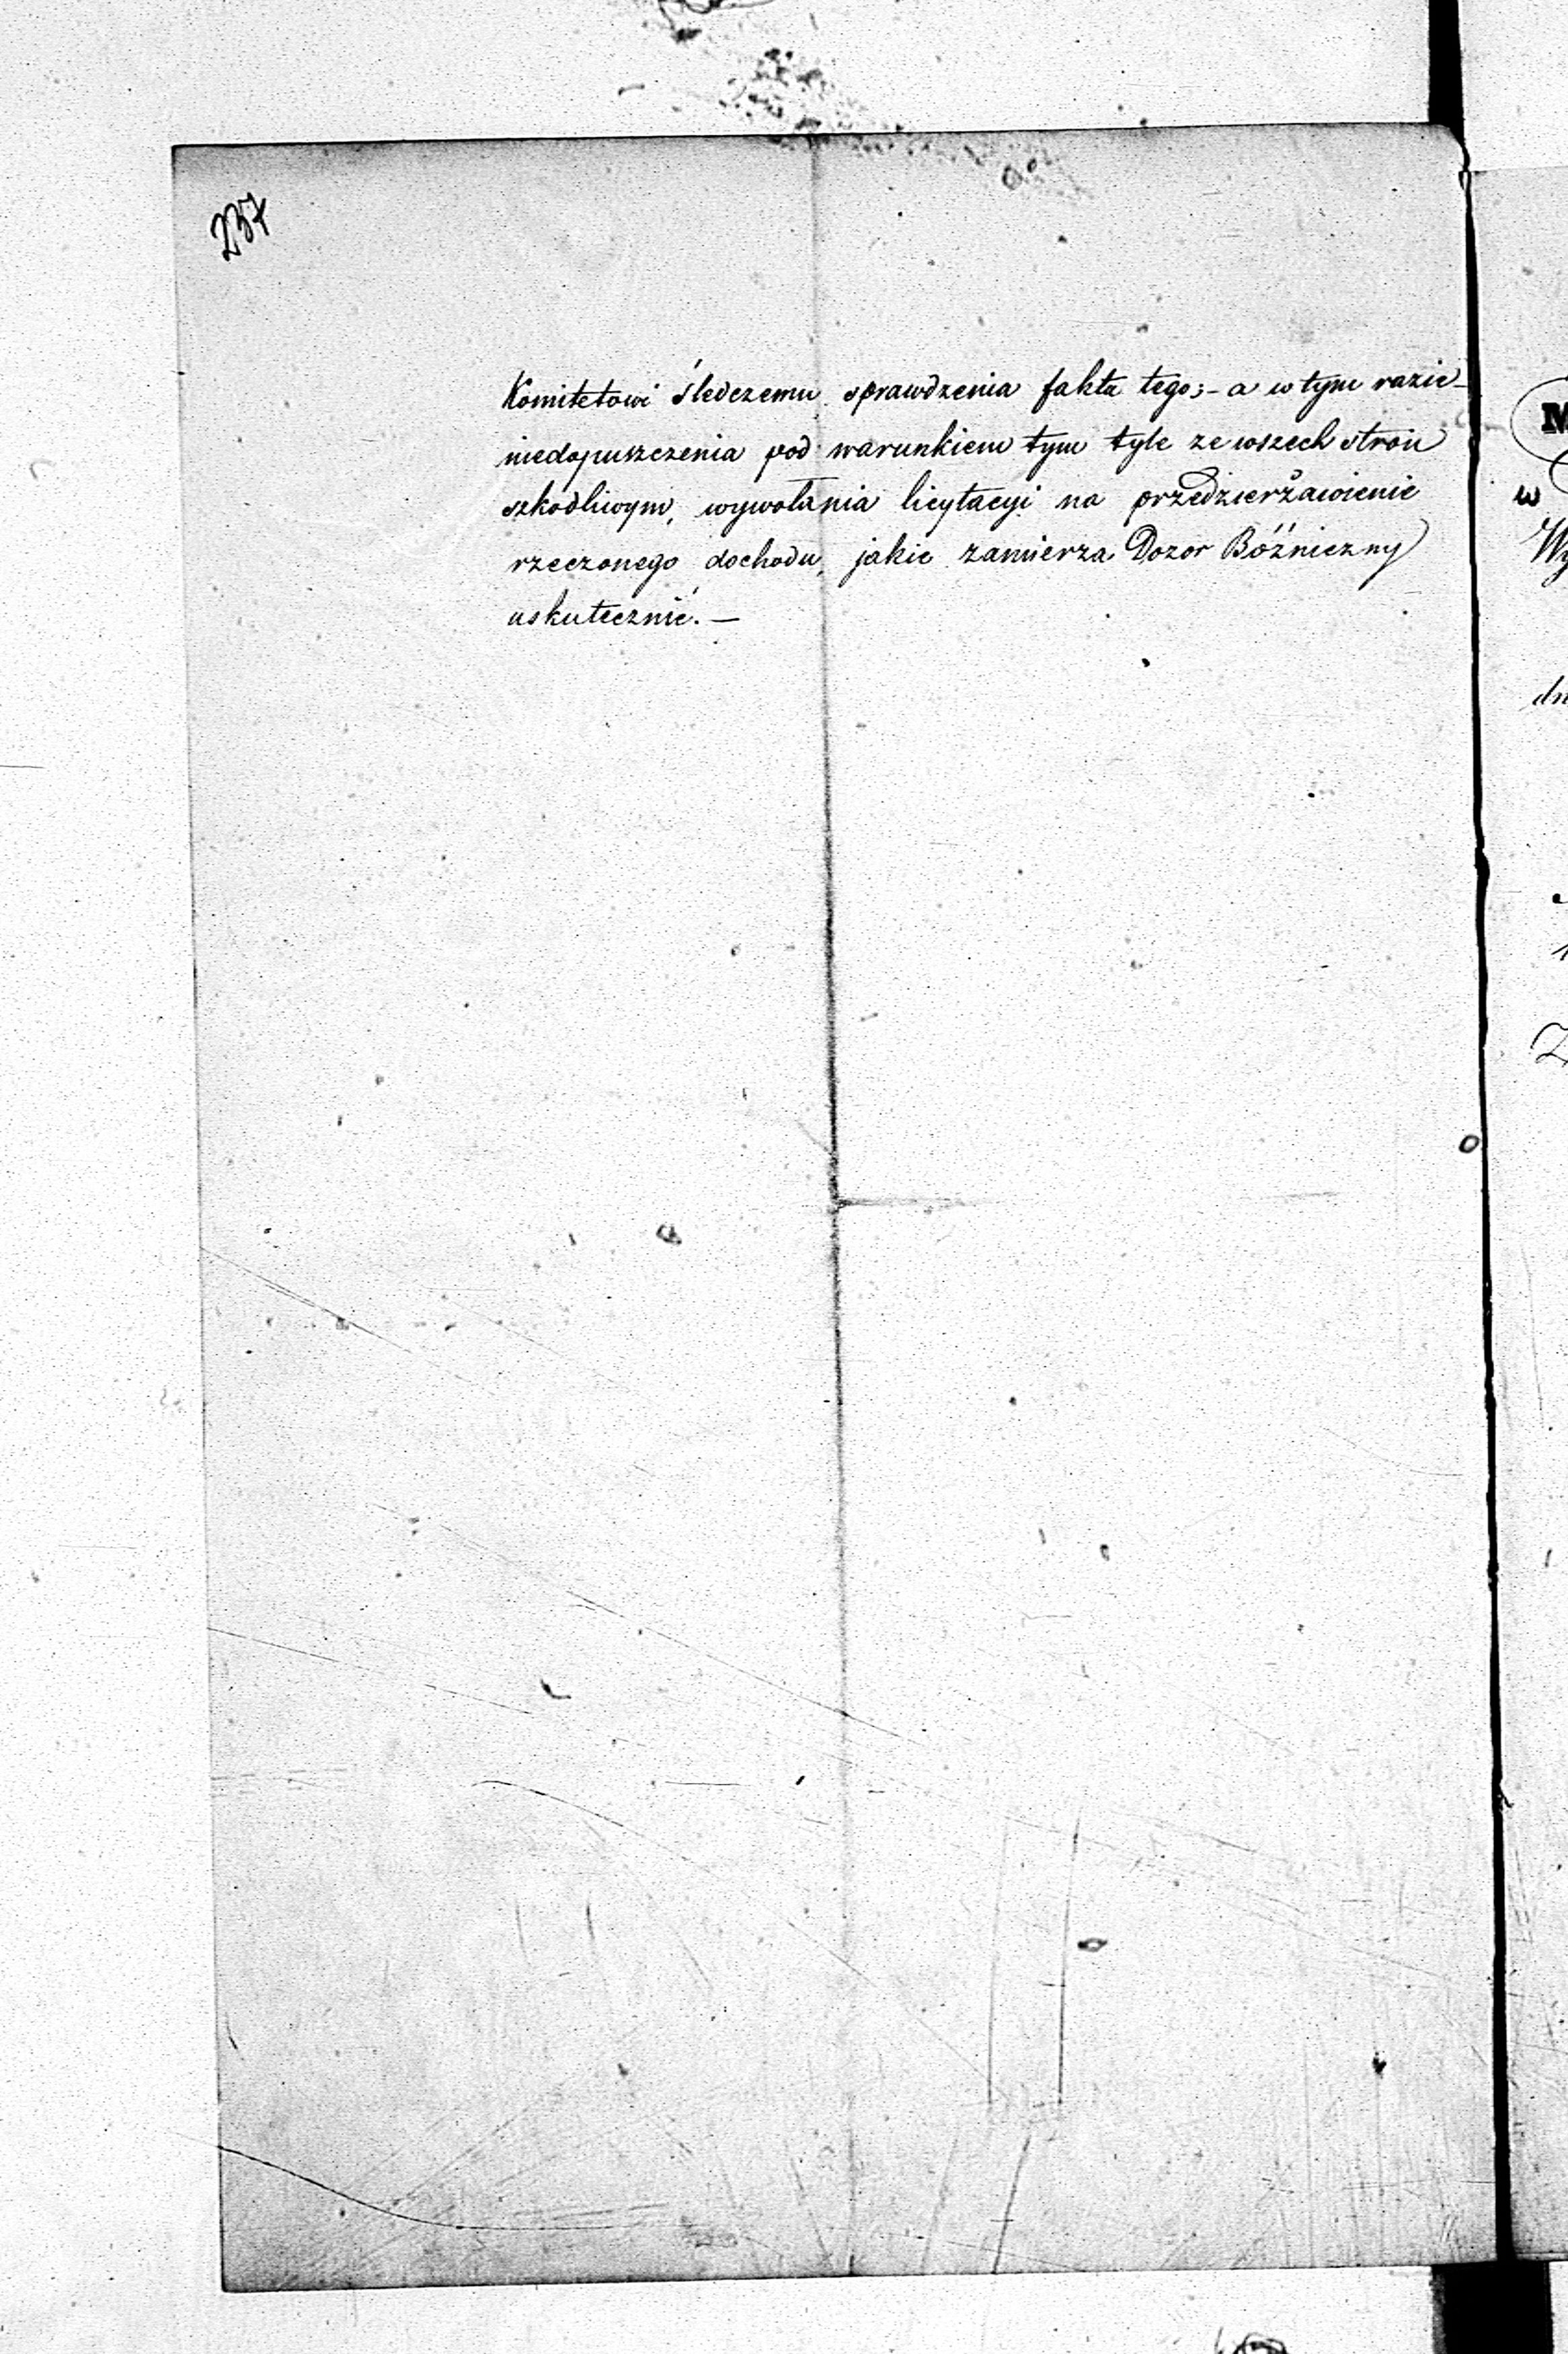 237
Komitetowi śledczemu sprawdzenia fakta tego; – a w tym razie
niedopuszczenia pod warunkiem tym tyle ze wszech stron
szkodliwym, wywołania licytacyi na przedzierżawienie
rzeczonego dochodu, jakie zamierza Dozor Bóźniczny
uskutecznić. —
M
w
Wy
dn